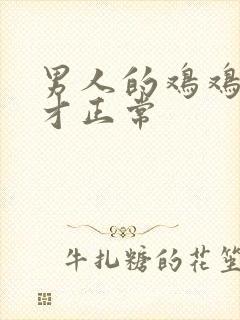 男人的鸡鸡
才正常
牛扎糖的花笙